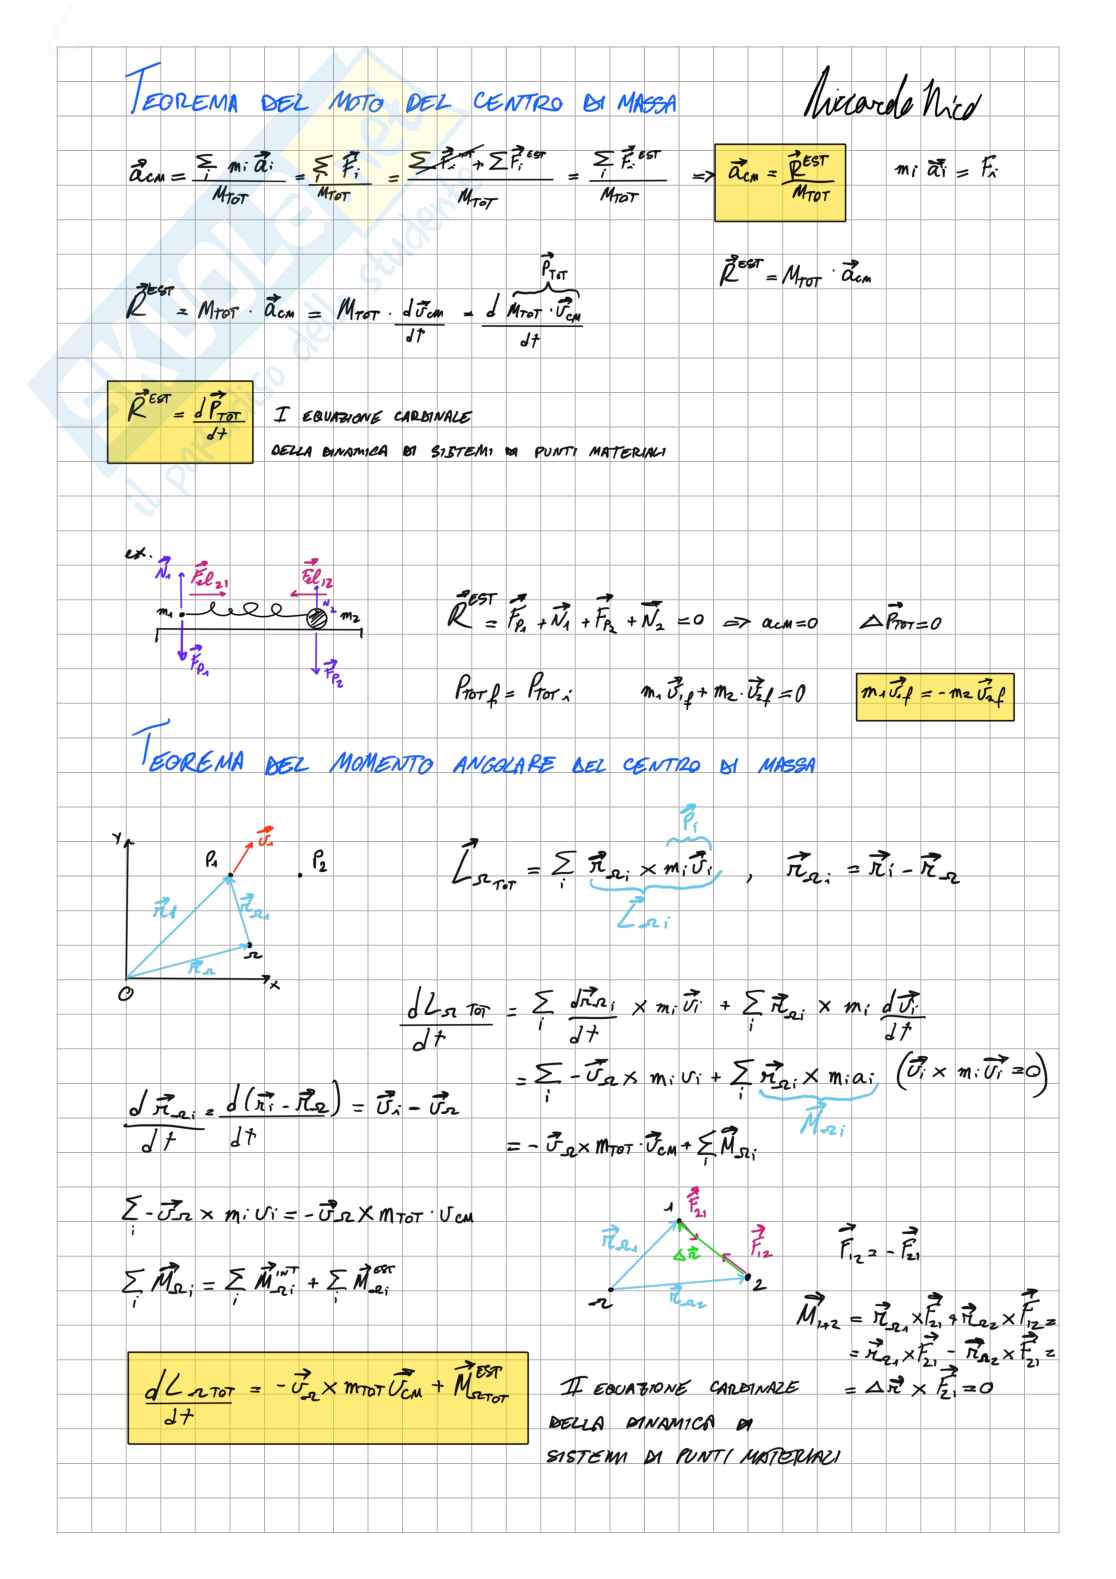 TEOREMA DEL MOTO DEL CENTRO DI MASSA
Riccardo Nico
a⃗CM = Σi mi a⃗i / MTOT = Σi F⃗i / MTOT = ΣF⃗iINT + ΣF⃗iEST / MTOT = Σi F⃗iEST / MTOT => a⃗CM = R⃗EST / MTOT
mi a⃗i = F⃗i
R⃗EST = MTOT · a⃗CM
P⃗TOT
R⃗EST = MTOT · a⃗CM = MTOT · dv⃗CM / dt = d MTOT · v⃗CM / dt
R⃗EST = dP⃗TOT / dt
I EQUAZIONE CARDINALE
DELLA DINAMICA DI SISTEMI DI PUNTI MATERIALI
SKUOLA.net
il paradiso dello studente
ex.
N⃗1 F⃗el21 F⃗el12
m1 N2 m2
F⃗P1 F⃗P2
R⃗EST = F⃗P1 + N⃗1 + F⃗P2 + N⃗2 = 0 => aCM = 0 ΔP⃗TOT = 0
PTOT f = PTOT i m1 v⃗1f + m2 · v⃗2f = 0 m1 v⃗1f = -m2 v⃗2f
TEOREMA DEL MOMENTO ANGOLARE DEL CENTRO DI MASSA
Y P1 v⃗1 P2
r⃗1 r⃗Ω1
r⃗Ω Ω
O X
P⃗i
L⃗ΩTOT = Σi r⃗Ωi × mi v⃗i , r⃗Ωi = r⃗i - r⃗Ω
L⃗Ωi
dLΩ TOT / dt = Σi dr⃗Ωi / dt × mi v⃗i + Σi r⃗Ωi × mi dv⃗i / dt
= Σi -v⃗Ω × mi vi + Σi r⃗Ωi × mi ai (v⃗i × mi v⃗i = 0)
M⃗Ωi
d r⃗Ωi / dt = d(r⃗i - r⃗Ω) / dt = v⃗i - v⃗Ω
= -v⃗Ω × mTOT · v⃗CM + Σi M⃗Ωi
Σi -v⃗Ω × mi vi = -v⃗Ω × mTOT · vCM
Σi M⃗Ωi = Σi M⃗ΩiINT + Σi M⃗ΩiEST
1 F⃗21
r⃗Ω1 Δr⃗ F⃗12
Ω r⃗Ω2 2
F⃗12 = -F⃗21
M⃗1+2 = r⃗Ω1 × F⃗21 + r⃗Ω2 × F⃗12 =
= r⃗Ω1 × F⃗21 - r⃗Ω2 × F⃗21 =
= Δr⃗ × F⃗21 = 0
dLΩTOT / dt = -v⃗Ω × mTOT v⃗CM + M⃗ΩTOTEST
II EQUAZIONE CARDINALE
DELLA DINAMICA DI
SISTEMI DI PUNTI MATERIALI